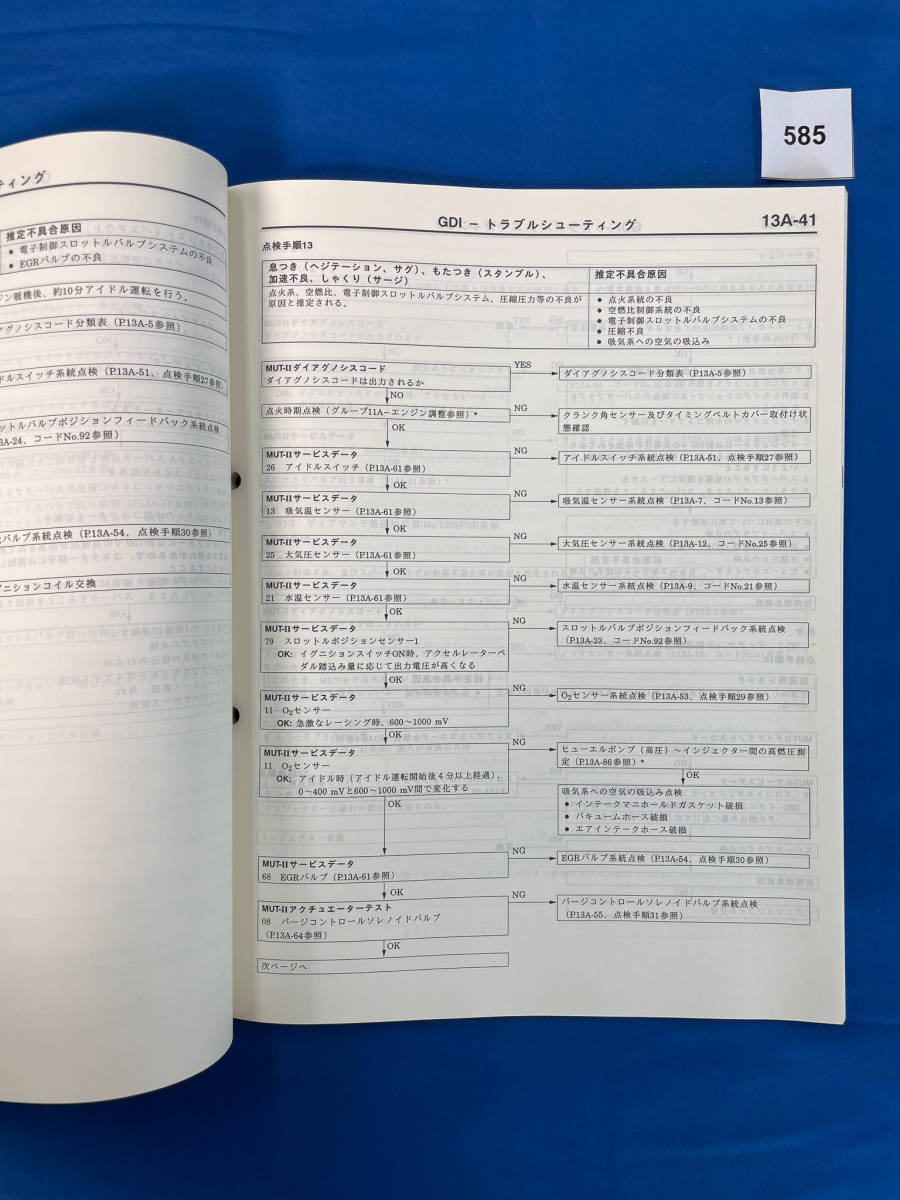 585
ティング
推定不具合原因
● 電子制御スロットルバルブシステムの不良
● EGRバルブの不良
ジン暖機後、約10分アイドル運転を行う。
アグノシスコード分類表(P.13A-5参照)
ドルスイッチ系統点検(P.13A-51、点検手順27参照)
ロットルバルブポジションフィードバック系統点検
3A-24、コードNo.92参照)
バルブ系統点検(P.13A-54、点検手順30参照)
グニションコイル交換
GDI − トラブルシューティング
13A-41
点検手順13
息つき(ヘジテーション、サグ)、もたつき(スタンブル)、
加速不良、しゃくり(サージ)
点火系、空燃比、電子制御スロットルバルブシステム、圧縮圧力等の不良が
原因と推定される。
推定不具合原因
● 点火系統の不良
● 空燃比制御系統の不良
● 電子制御スロットルバルブシステムの不良
● 圧縮不良
● 吸気系への空気の吸込み
MUT-IIダイアグノシスコード
ダイアグノシスコードは出力されるか
YES
ダイアグノシスコード分類表(P.13A-5参照)
NO
点火時期点検(グループ11A−エンジン調整参照)*
NG
クランク角センサー及びタイミングベルトカバー取付け状
態確認
OK
MUT-IIサービスデータ
26 アイドルスイッチ(P.13A-61参照)
NG
アイドルスイッチ系統点検(P.13A-51、点検手順27参照)
OK
MUT-IIサービスデータ
13 吸気温センサー(P.13A-61参照)
NG
吸気温センサー系統点検(P.13A-7、コードNo.13参照)
OK
MUT-IIサービスデータ
25 大気圧センサー(P.13A-61参照)
NG
大気圧センサー系統点検(P.13A-12、コードNo.25参照)
OK
MUT-IIサービスデータ
21 水温センサー(P.13A-61参照)
NG
水温センサー系統点検(P.13A-9、コードNo.21参照)
OK
MUT-IIサービスデータ
79 スロットルポジションセンサー1
OK: イグニションスイッチON時、アクセルレーターペ
ダル踏込み量に応じて出力電圧が高くなる
NG
スロットルバルブポジションフィードバック系統点検
(P.13A-23、コードNo.92参照)
OK
MUT-IIサービスデータ
11 O2センサー
OK: 急激なレーシング時、600〜1000 mV
NG
O2センサー系統点検(P.13A-53、点検手順29参照)
OK
MUT-IIサービスデータ
11 O2センサー
OK: アイドル時(アイドル運転開始後4分以上経過)、
0〜400 mVと600〜1000 mV間で変化する
NG
ヒューエルポンプ(高圧)〜インジェクター間の高燃圧測
定(P.13A-86参照)*
OK
吸気系への空気の吸込み点検
● インテークマニホールドガスケット破損
● バキュームホース破損
● エアインテークホース破損
OK
MUT-IIサービスデータ
68 EGRバルブ(P.13A-61参照)
NG
EGRバルブ系統点検(P.13A-54、点検手順30参照)
OK
MUT-IIアクチュエーターテスト
08 パージコントロールソレノイドバルブ
(P.13A-64参照)
NG
パージコントロールソレノイドバルブ系統点検
(P.13A-55、点検手順31参照)
OK
次ページへ